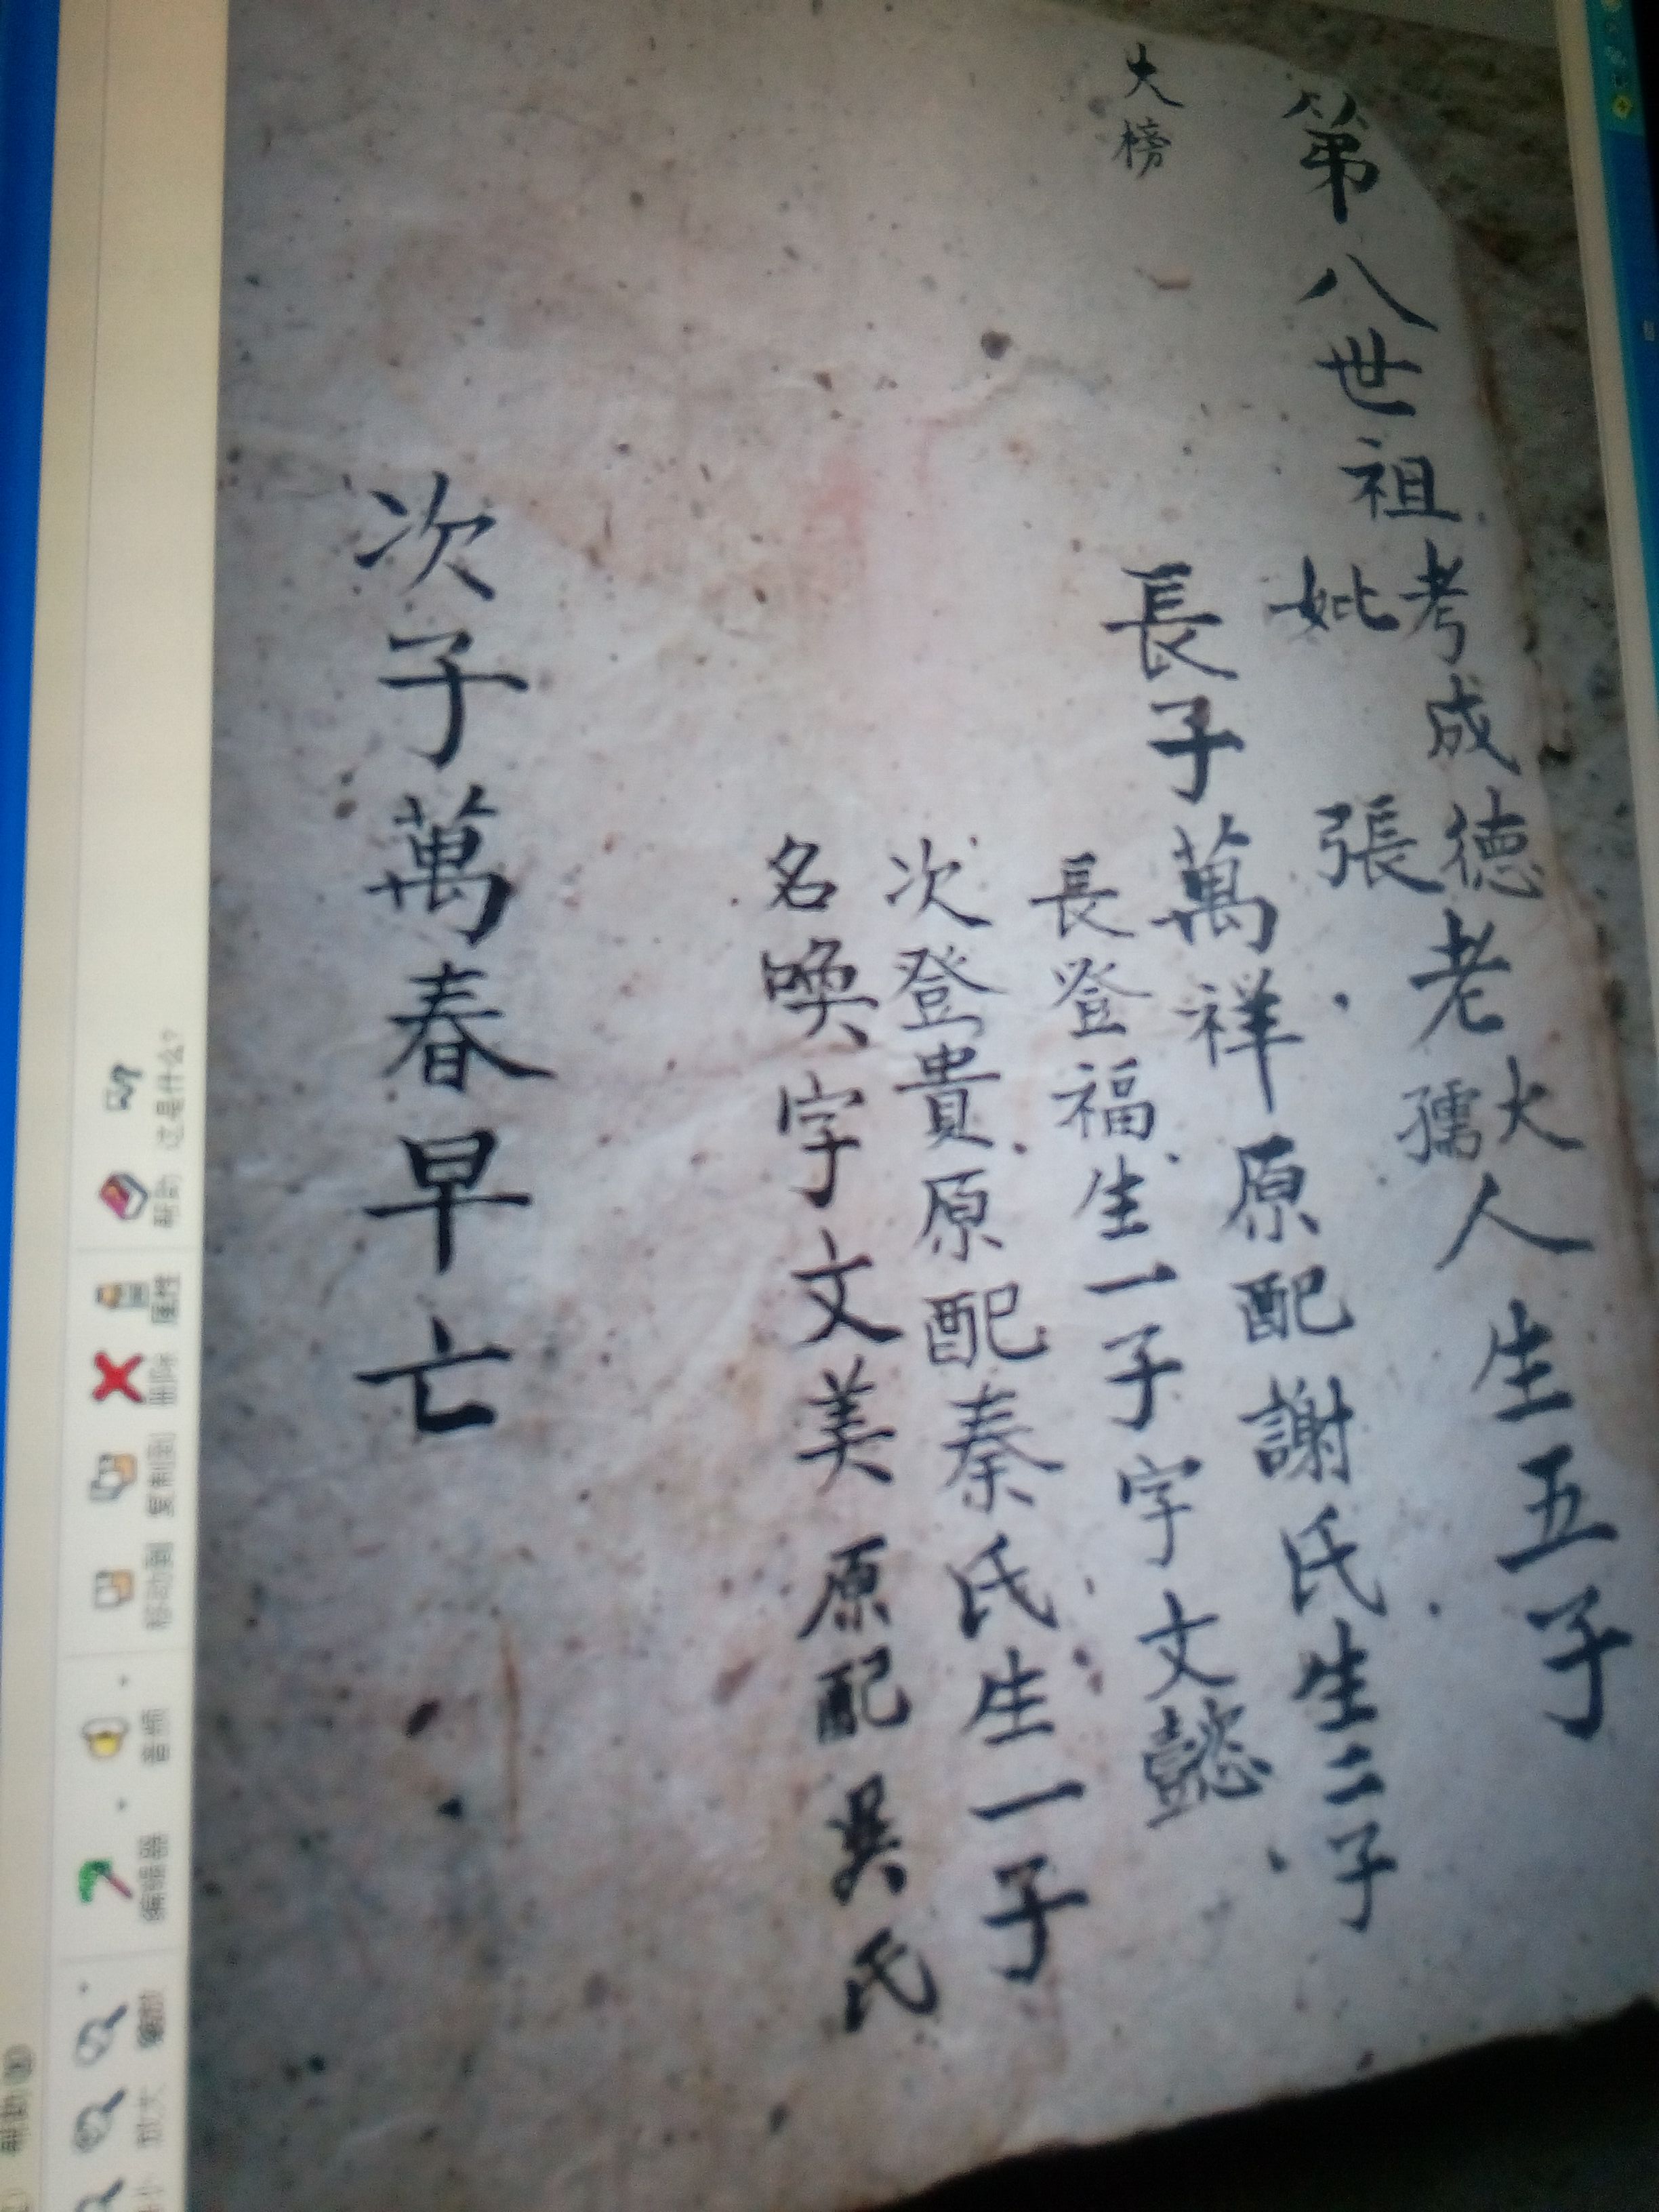 第八世祖考成德老大人生五子
妣張孺
大榜
長子萬祥原配謝氏生二子
長登福生一子字文懿
次登貴原配秦氏生一子
名喚字文美原配吳氏
次子萬春早亡
帮助 这是什么?
属性
删除
复制到
移动到
音频
编辑器
放大